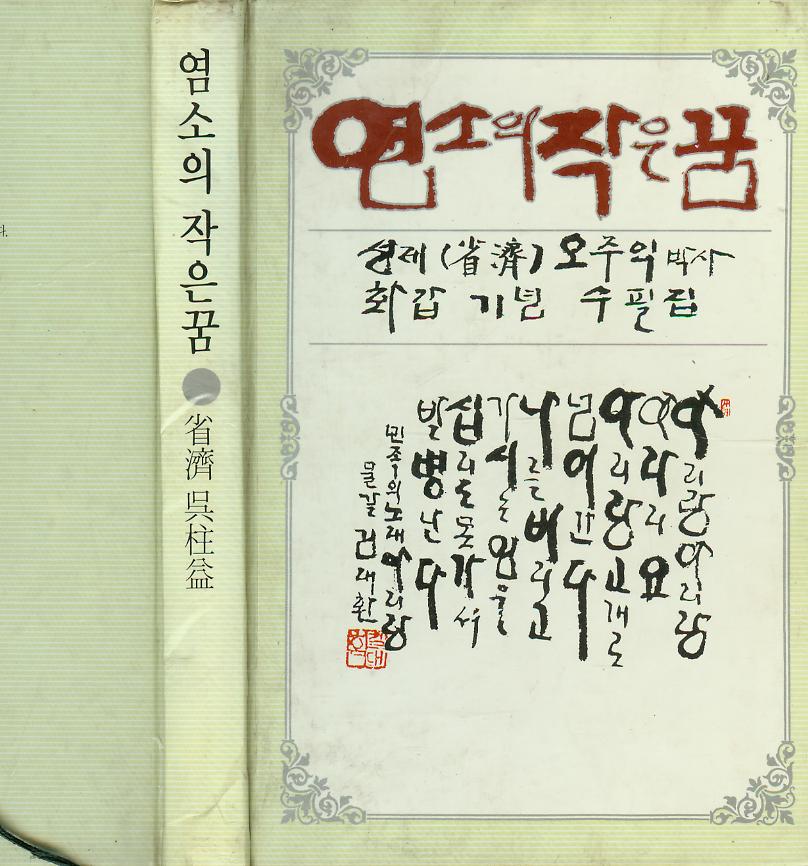 염소의 작은꿈
省濟 呉柱益
염소의 작은 꿈
성제 (省濟) 오주익 박사
화갑 기념 수필집
아리랑 아리랑
아라리요
아리랑 고개로
넘어간다
나를 버리고
가시는 임을
십리도 못가서
발병난다
민족의 노래 아리랑
김대환